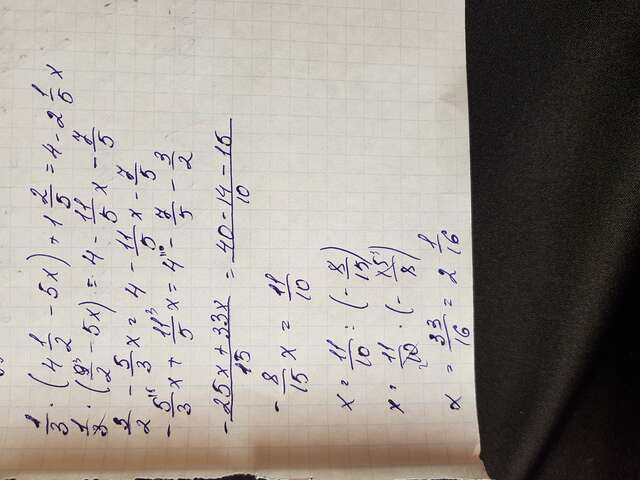 1/3 · (4 1/2 - 5x) + 1 2/5 = 4 - 2 1/5 x
1/3 · (9/2 - 5x) = 4 - 11/5 x - 7/5
3/2 - 5/3 x = 4 - 11/5 x - 7/5
- 5/3 x + 11/5 x = 4 - 7/5 - 3/2
(-25x + 33x)/15 = (40 - 14 - 15)/10
- 8/15 x = 11/10
x = 11/10 : (- 8/15)
x = 11/10 · (- 15/8)
x = 33/16 = 2 1/16